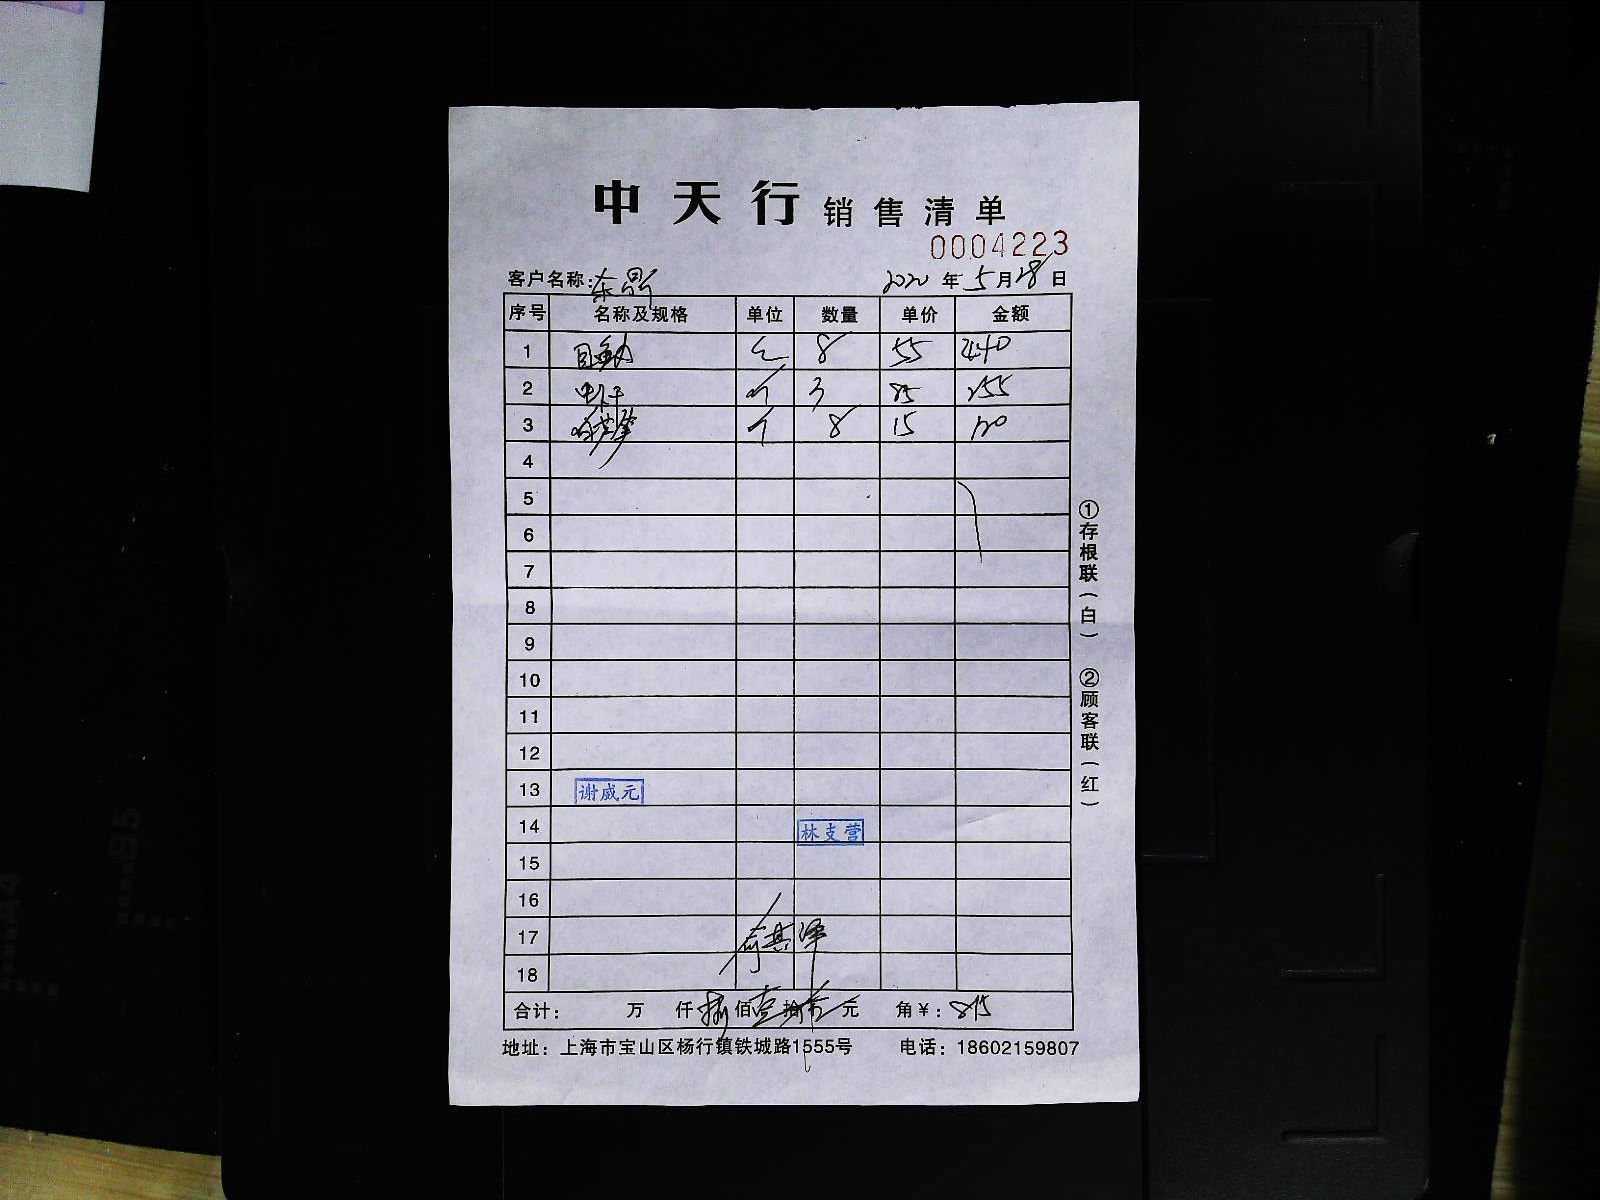 中天行 销售清单
0004223
客户名称: 东晶 2020年5月28日
序号 名称及规格 单位 数量 单价 金额
1 8 55 440
2 个 3 85 255
3 个 8 15 120
4
5
6
7
8
9
10
11
12
13 谢威元
14 林支营
15
16
17
18
合计: 万 仟 捌佰壹拾 元 角¥: 815
地址: 上海市宝山区杨行镇铁城路1555号 电话: 18602159807
①存根联(白) ②顾客联(红)
B5
A4